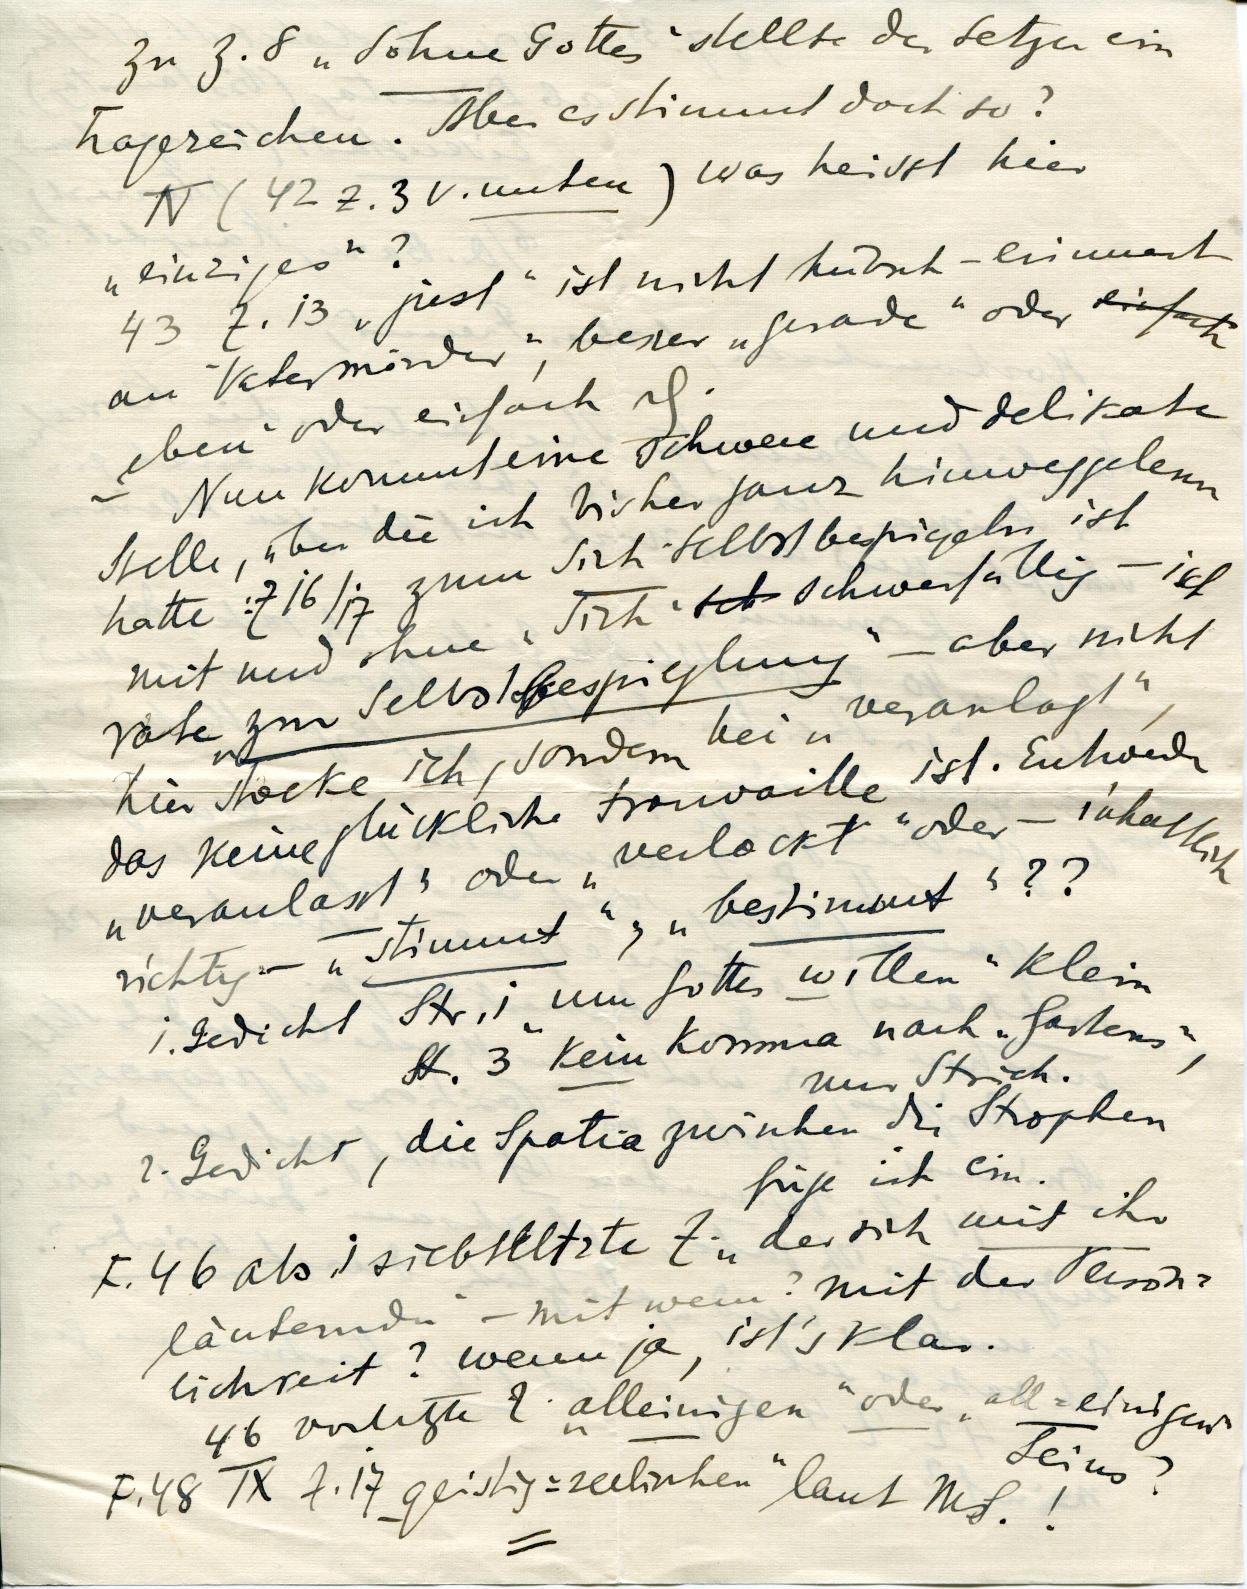 zu Z. 8 „Söhne Gottes" stellte der Setzer ein
Fragezeichen. Aber es stimmt doch so?
IV (42 Z. 3 v. unten) was heisst hier
„einziges"?
43 Z. 13 „just" ist nicht hübsch – erinnert
an „Vatermörder", besser „gerade" oder einfach
„eben" oder einfach
Nun kommt eine schwere und delikate
Stelle, über die ich bisher ganz hinweggelesen
hatte: Z 16/17 zum Sich-Selbstbespiegeln ist
mit und ohne „Sich" sch schwerfällig – ich
rate „zur Selbstbespieglung" – aber nicht
hier stocke ich, sondern bei „veranlagt",
das keine glückliche trouvaille ist. Entweder
„veranlasst" oder „verlockt" oder – inhaltlich
richtig – „stimmt", „bestimmt"??
1. Gedicht Str. 1 „um Gottes willen" klein
St. 3 kein Komma nach „Gartens",
nur Strich.
2. Gedicht, die Spatia zwischen die Strophen
füge ich ein.
F. 46 als siebtletzte Z. „der sich mit ihr
läuternden" – mit wem? mit der Persön=
lichkeit? wenn ja, ist's klar.
46 vorletzte Z. „alleinigen" oder „all=einigen
Seins?
F. 48 IX Z. 17 geistig=seelischen" laut MS.!